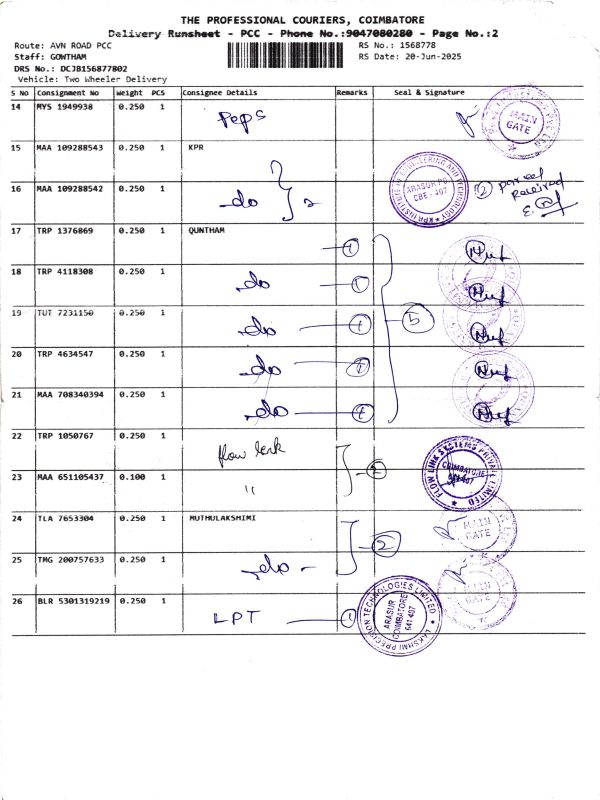 THE PROFESSIONAL COURIERS, COIMBATORE
Delivery Runsheet - PCC - Phone No.:9047080280 - Page No.:2
Route: AVN ROAD PCC RS No.: 1568778
Staff: GOWTHAM RS Date: 20-Jun-2025
DRS No.: DCJB156877802
Vehicle: Two Wheeler Delivery
S No Consignment No Weight PCS Consignee Details Remarks Seal & Signature
14 MYS 1949938 0.250 1 Peps MAIN GATE
15 MAA 109288543 0.250 1 KPR
16 MAA 109288542 0.250 1 -do 2 KPR INSTITUTE OF ENGINEERING AND TECHNOLOGY ARASUR PO CBE - 407 2 parcel Received
17 TRP 1376869 0.250 1 QUNTHAM 1
18 TRP 4118308 0.250 1 -do 1
19 TUT 7231150 0.250 1 -do 1 5
20 TRP 4634547 0.250 1 -do 1
21 MAA 708340394 0.250 1 -do 1
22 TRP 1050767 0.250 1 flow link
23 MAA 651105437 0.100 1 " 2 FLOW LINK SYSTEMS PRIVATE LIMITED COIMBATORE 641 407
24 TLA 7653304 0.250 1 MUTHULAKSHIMI 2 MAIN GATE
25 TMG 200757633 0.250 1 -do - MAIN GATE
26 BLR 5301319219 0.250 1 LPT 1 LAKSHMI PRECISION TECHNOLOGIES LIMITED ARASUR COIMBATORE 641 407